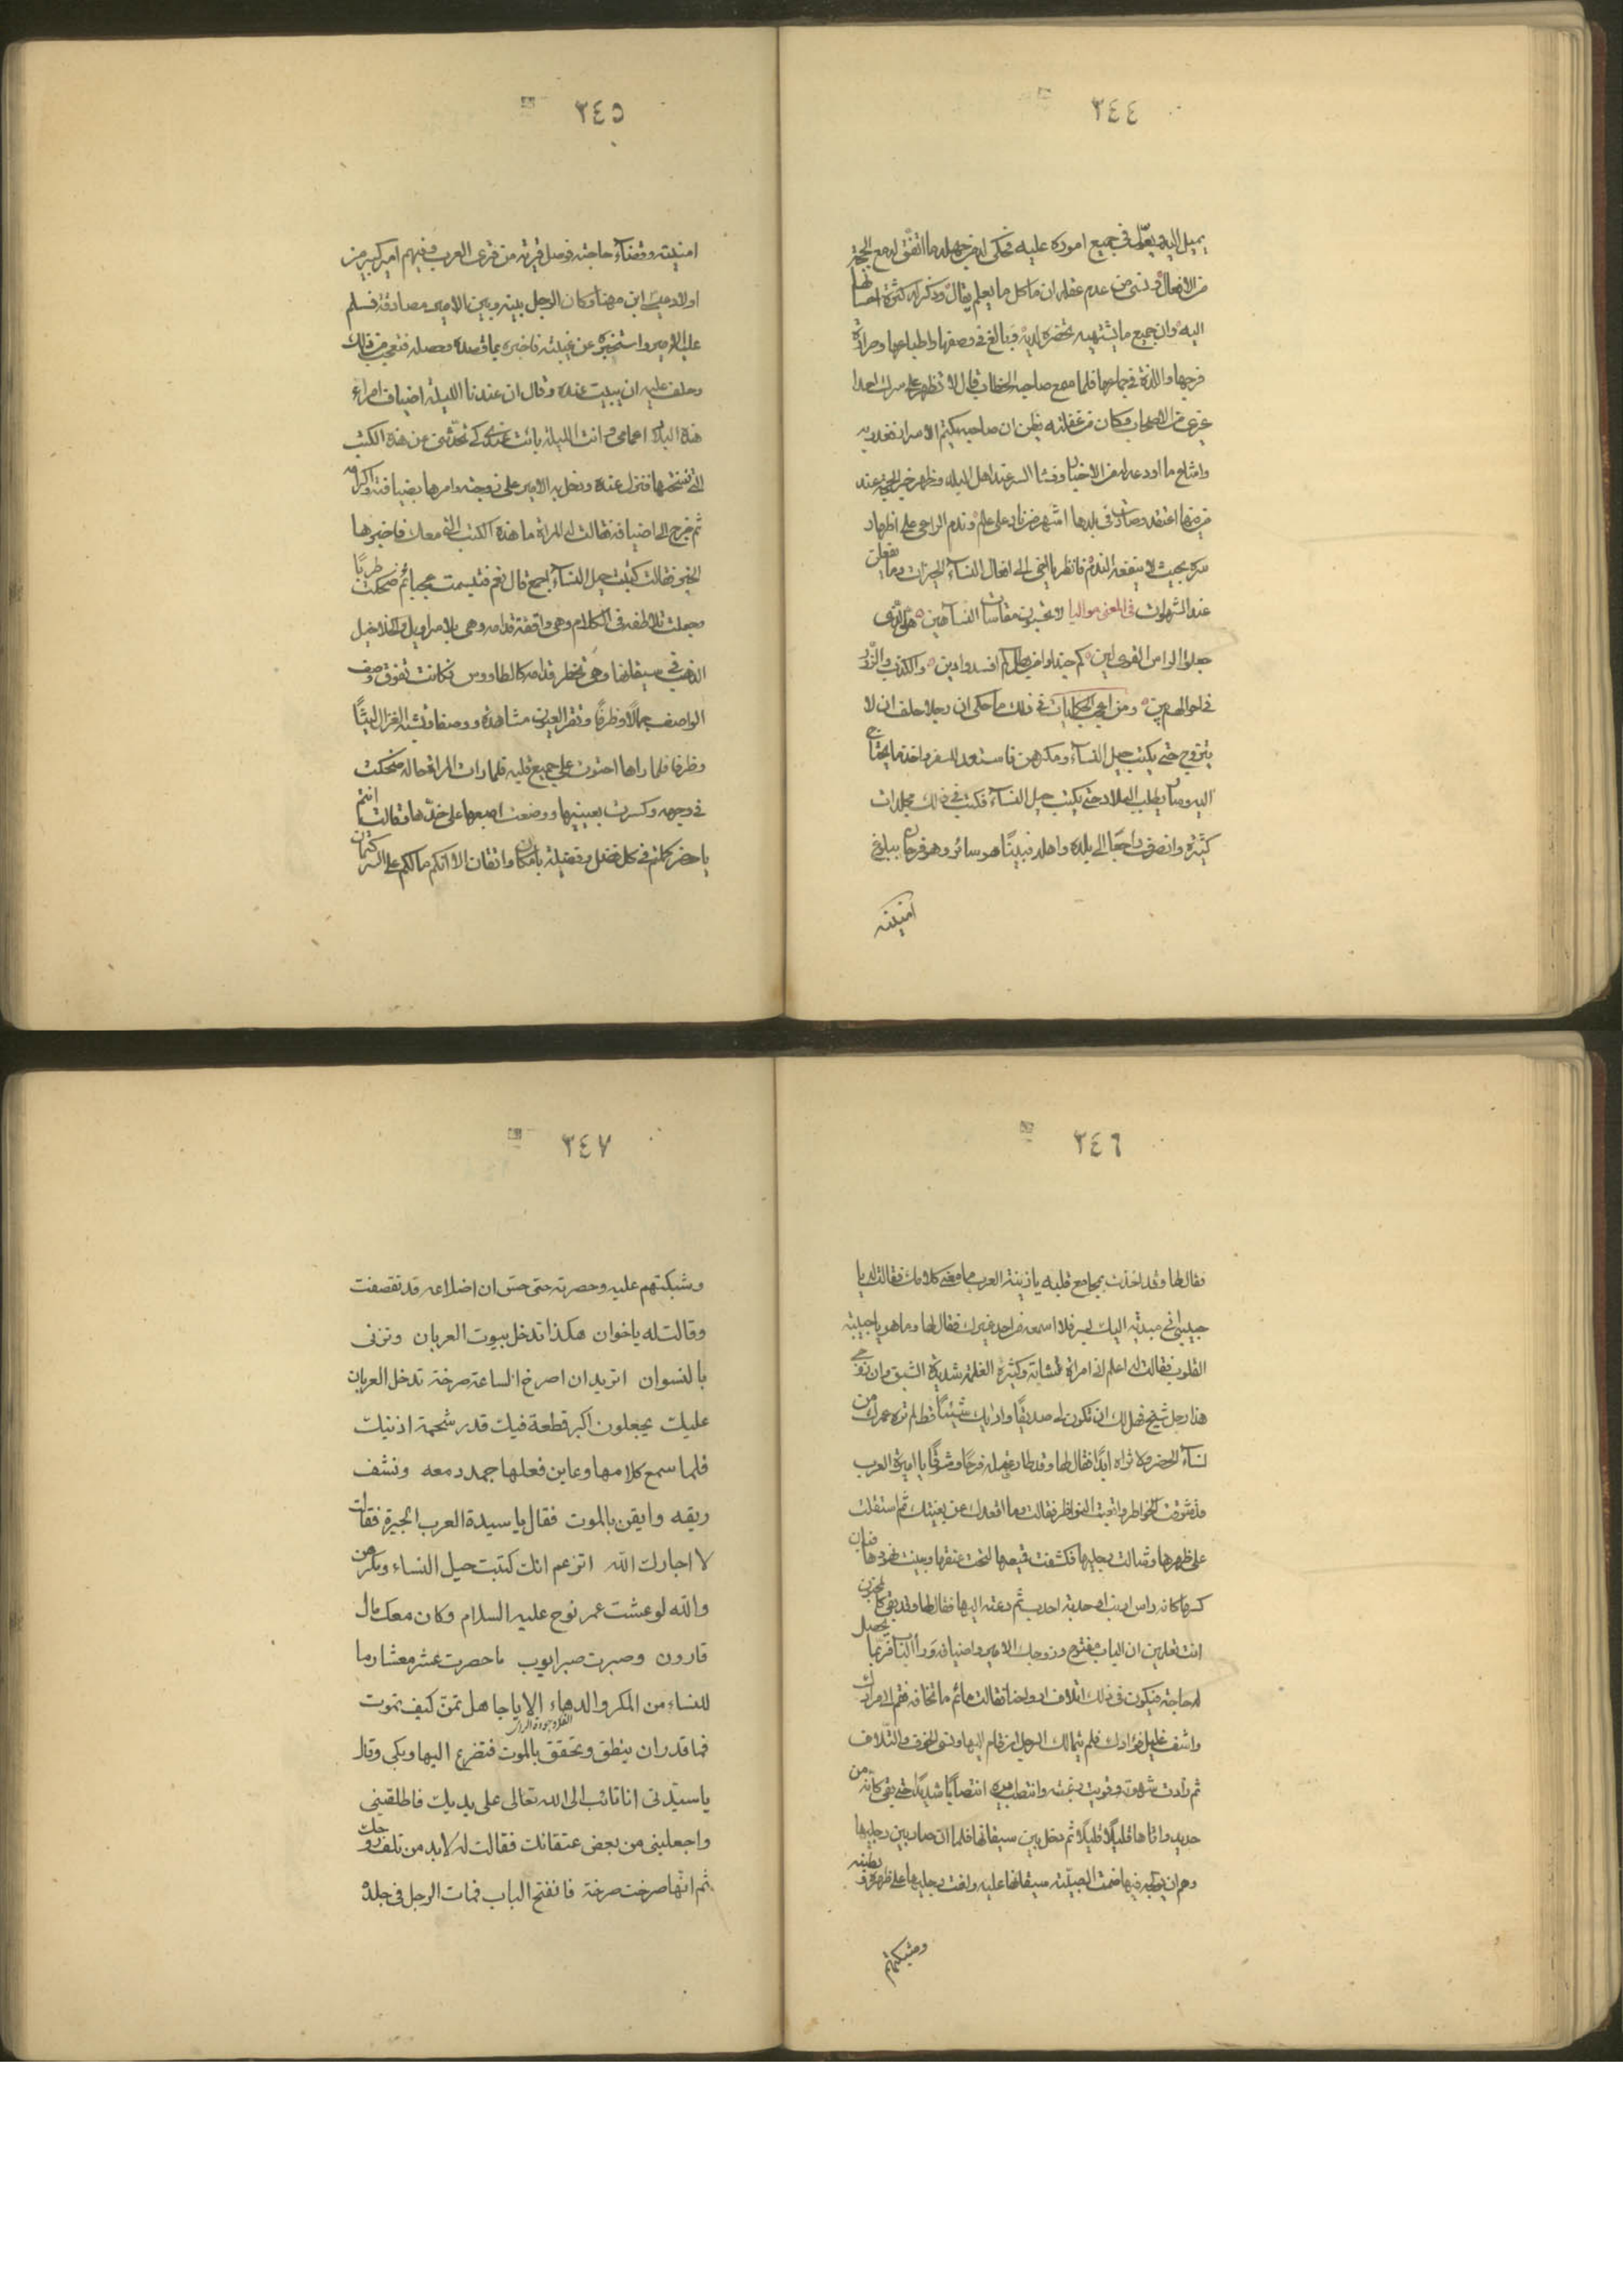 ٣٤٤
يميل اليه ويعوّل في جميع اموره عليه فحكى له من جهله ما اتفق له مع الحجة
من الافعال ونسى من عدم عقله ان ما كل ما يعلم يقال وذكر له كثرة
اليه وان جميع ما يشتهيه تحضره لديه وبالغ في وصفها
فرجها واللذة في جماعها فلما سمع صاحبه الخطاب قال لا تظهر على سرك احدا
غيري من الاصحاب وكان من غفلته يظن ان صاحبه يكتم الاسرار
ما اودعه له من الاخبار وفشا السر عند اهل البلد وظهر خبر الحجة عند
من فيها اعتقد وصارت في بلدها اشهر من نار على علم وندم الراعي على اظهار
سره بحيث لا ينفعه الندم فانظر يا اخي الى افعال النساء الخيرات وما يفعلن
عند الشهوات في المعنى مواليا
جعلوا الوامن القوى لين كم جيد افسدوا دين والكذب والزور
في احوالهم بين ومن اعجب الحكايات في ذلك ما حكى ان رجلا حلف ان لا
يتزوج حتى يكتب حيل النساء ومكرهن فاستعد للسفر واخذ ما يحتاج
اليه وصار يطلب البلاد حتى يكتب حيل النساء فكتب في ذلك مجلدات
كثيرة وانصرف راجعا الى بلده واهله فبينما هو سائر وهو فرحان ببلوغ
امنيته
٣٤٥
امنيته وقضاء حاجته فوصل قرية من قرى العرب وفيهم امير كبير من
اولاد عيسى ابن مهنا وكان الرجل بينه وبين الامير مصادقة فسلم
على الامير واستخبره عن غيبته فاخبره بما قصده وحصله فتعجب من ذلك
وحلف عليه ان يبيت عنده وقال ان عندنا الليلة اضياف امراء
هذه البلد اعمامى وانت الليلة بائت عندى كى تحدثنى من هذه الكتب
التى نسختها فنزل عنده ودخل به الامير على زوجته وامرها بضيافته واكرامه
ثم خرج الى اضيافه فقالت له المراة ما هذه الكتب التى معك فاخبرها
الخبر فقالت كتبت حيل النساء اجمع قال نعم فتبسمت عجبا ثم ضحكت طربًا
وجعلت تلاطفه فى الكلام وهى واقفة قدامه وهى بلا سراويل والخلاخيل
الذهب فى سيقانها وهى تخطر قدامه كالطاووس فكانت تفوق وصف
الواصف جمالًا وظرفًا وتقر العيون مشاهدة ووصفا وتشبه الغزال ليثًا
وظرفا فلما راها احتوت على جميع قلبه فلما رات المراة حاله ضحكت
فى وجهه وكسرت بعينيها ووضعت اصبعها على خدها وقالت انتم
يا حضر كلتم فى كل فضل وفضيلة بامكان واتقان الا انكم ما لكم على السر كتمان
٣٤٦
فقال لها وقد اخذت بمجامع قلبه يا زينة العرب ما معنى كلامك فقالت له يا
حبيبى انى مبدية اليك بسر فلا اسمعه من احد غيرك فقال لها وما هو يا حبيبة
القلوب فقالت له اعلم انى امراة شابة وكثيرة الغلمة شديدة الشبق وان زوجى
هذا رجل شيخ فهل لك ان تكون لى صديقًا واوريك شيئًا قط لم تره عمرك من
نساء الحضر ولا تراه ابدًا فقال لها وقد طار عقله فرحًا وشوقًا يا اميرة العرب
قد شوقت الخواطر واتعبت النواظر فقالت وما اقعدك عن بغيتك ثم استقلت
على ظهرها وشالت رجليها فكشفت قميصها لتحت عنقها وبينت نهودها فبان
كسها كانه راس ارنب او حدبة احدب ثم دعته اليها فقال لها وقد بقى كالمجنون
انت تعلمين ان الباب مفتوح وزوجك الامير واضيافه وراء الباب فربما يحصل
له حاجة فيكون فى ذلك اتلاف ارواحنا فقالت ما ثم ما تخافه فقم الى مرادك
واشف غليل فؤادك فلم يتمالك الرجل ان قام اليها ونسى الخوف والتلاف
ثم زادت شهوته وقويت رغبته وانتصب ايره انتصابًا شديدًا حتى بقى كانه من
حديد واتاها قليلًا قليلًا ثم دخل بين سيقانها فلما ان صار بين رجليها
وهم ان يولجه فيها ضمت الصبية سيقانها عليه ولفت رجليها على ظهره وبطنه
وشبكتهم
٣٤٧
وشبكتهم عليه وحصرته حتى حس ان اضلاعه قد تقصفت
وقالت له يا خوان هكذا تدخل بيوت العربان وتزنى
بالنسوان اتريد ان اصرخ الساعة صرخة تدخل العربان
عليك يجعلون اكبر قطعة فيك قدر شحمة اذنيك
فلما سمع كلامها وعاين فعلها جمد دمعه ونشف
ريقه وايقن بالموت فقال يا سيدة العرب الجيرة فقالت
لا اجارك الله اتزعم انك كتبت حيل النساء ومكرهن
والله لو عشت عمر نوح عليه السلام وكان معك مال
قارون وصبرت صبر ايوب ما حصرت عشر معشار ما
للنساء من المكر والدهاء الا يا جاهل تمنّ كيف تموت
فما قدر ان ينطق وتحقق بالموت فتضرع اليها وبكى وقال
يا سيدتى انا تائب الى الله تعالى على يديك فاطلقينى
واجعلينى من بعض عتقائك فقالت له لا بد من تلف روحك
ثم انها صرخت صرخة فانفتح الباب فمات الرجل فى جلده